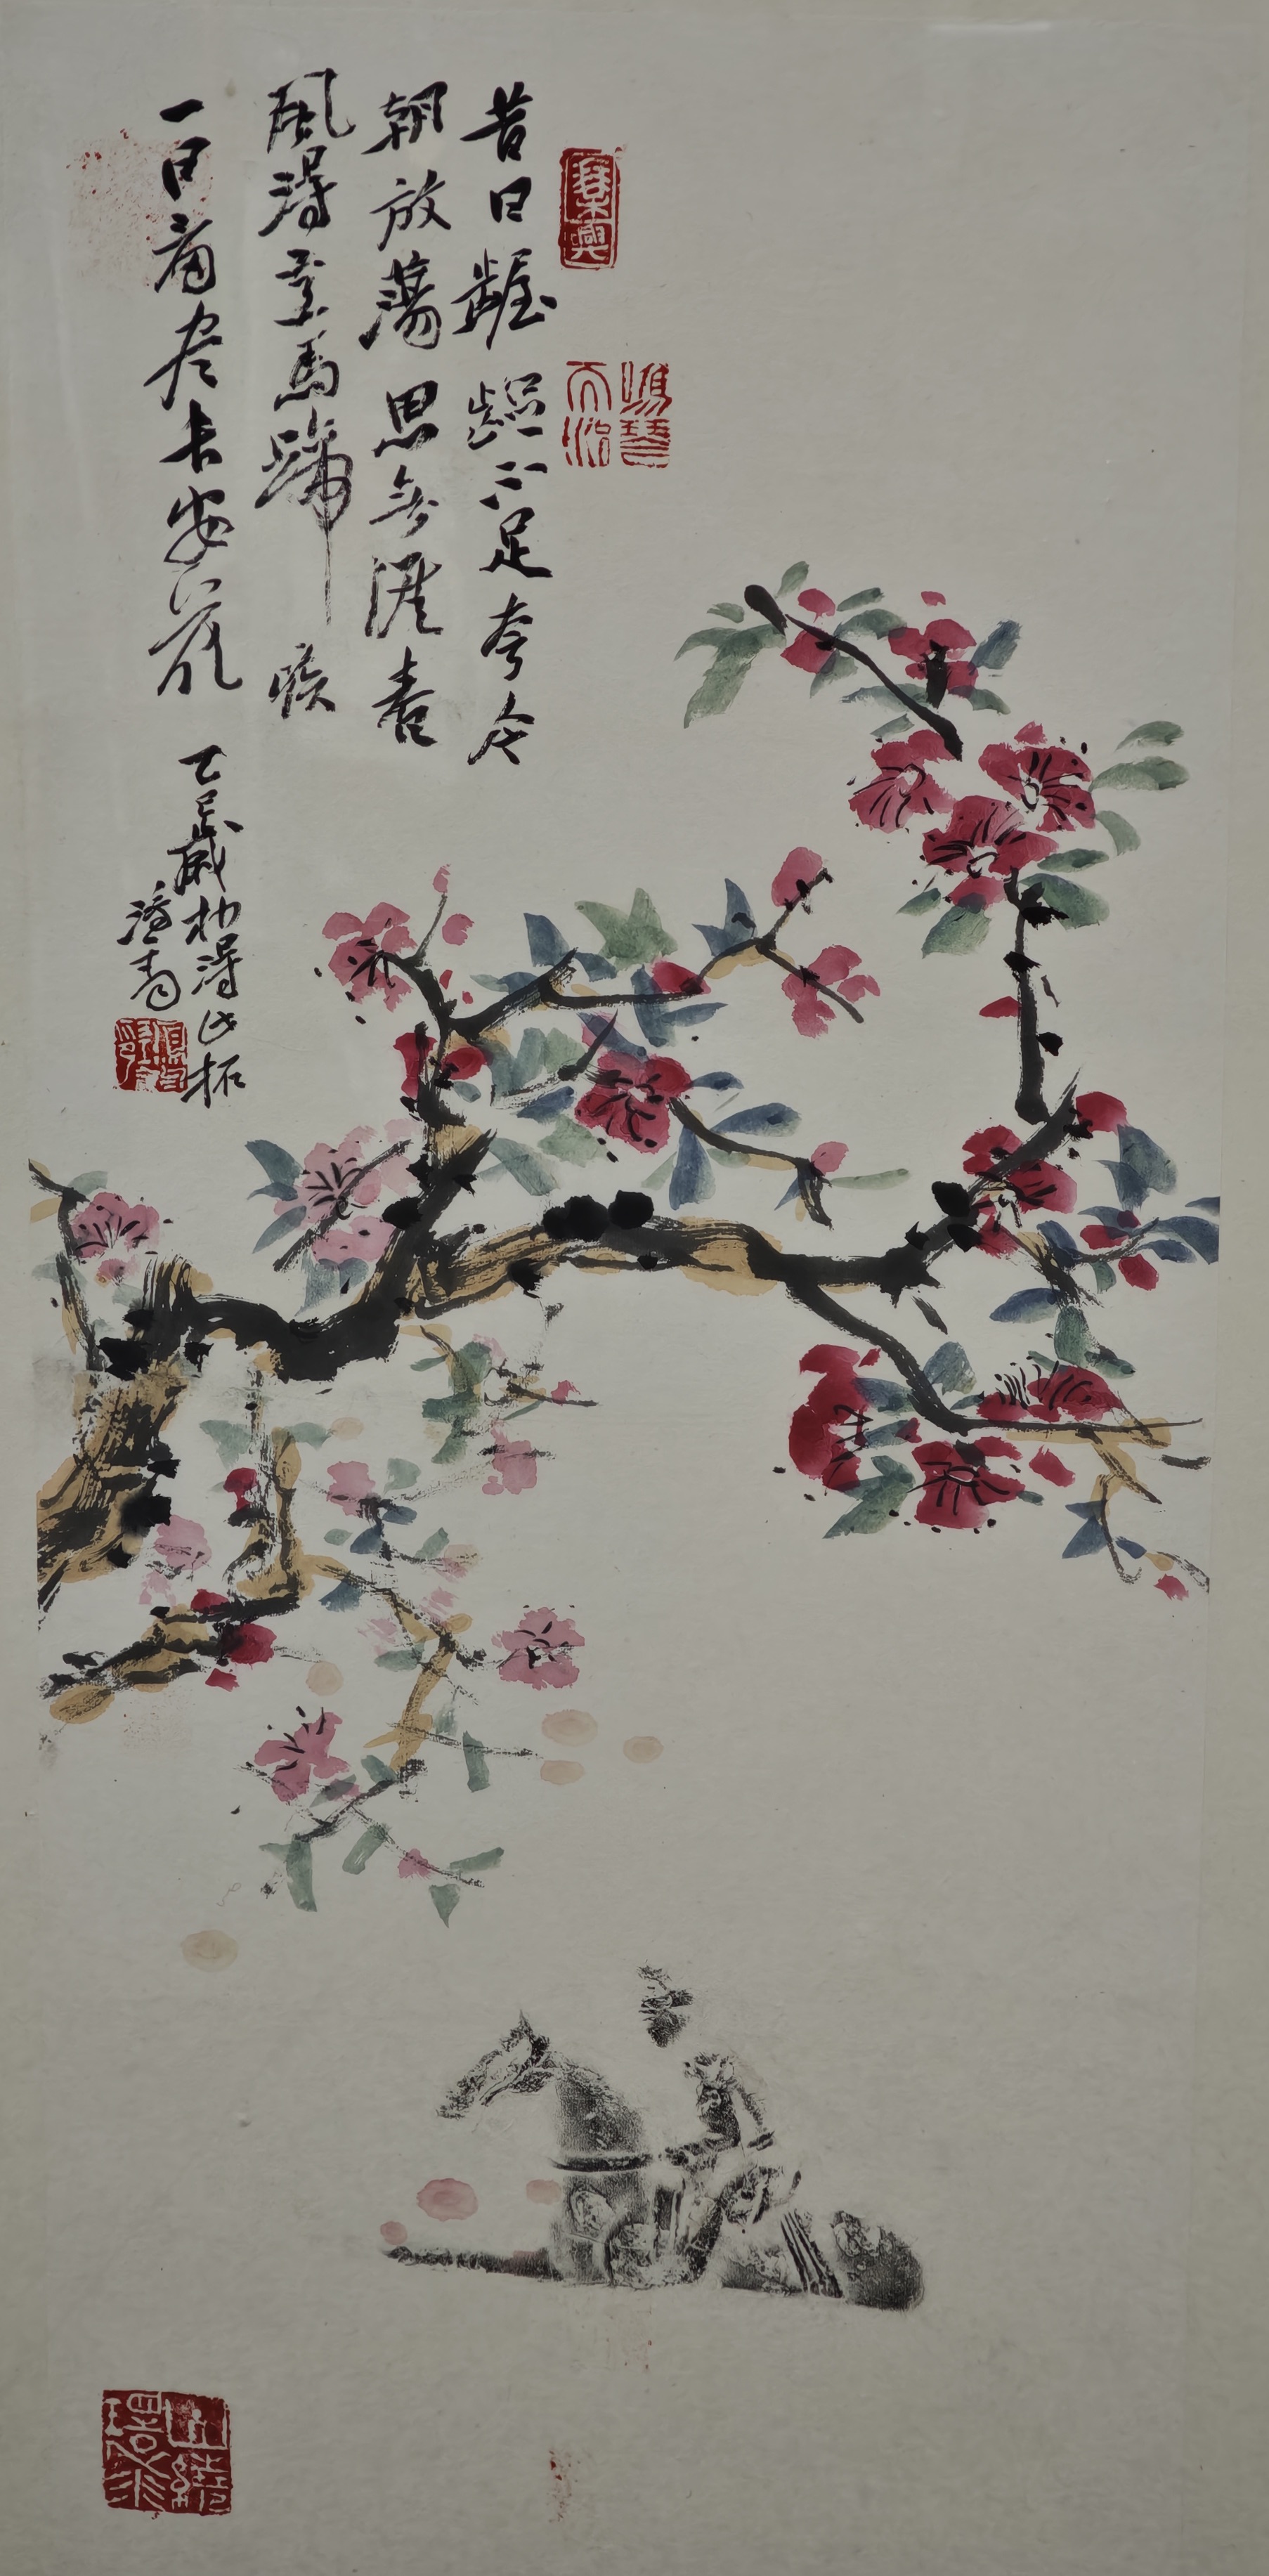 昔日齷齪不足夸今
朝放蕩思無涯春
風得意馬蹄疾
一日看尽长安花
乙巳歲初得此拓